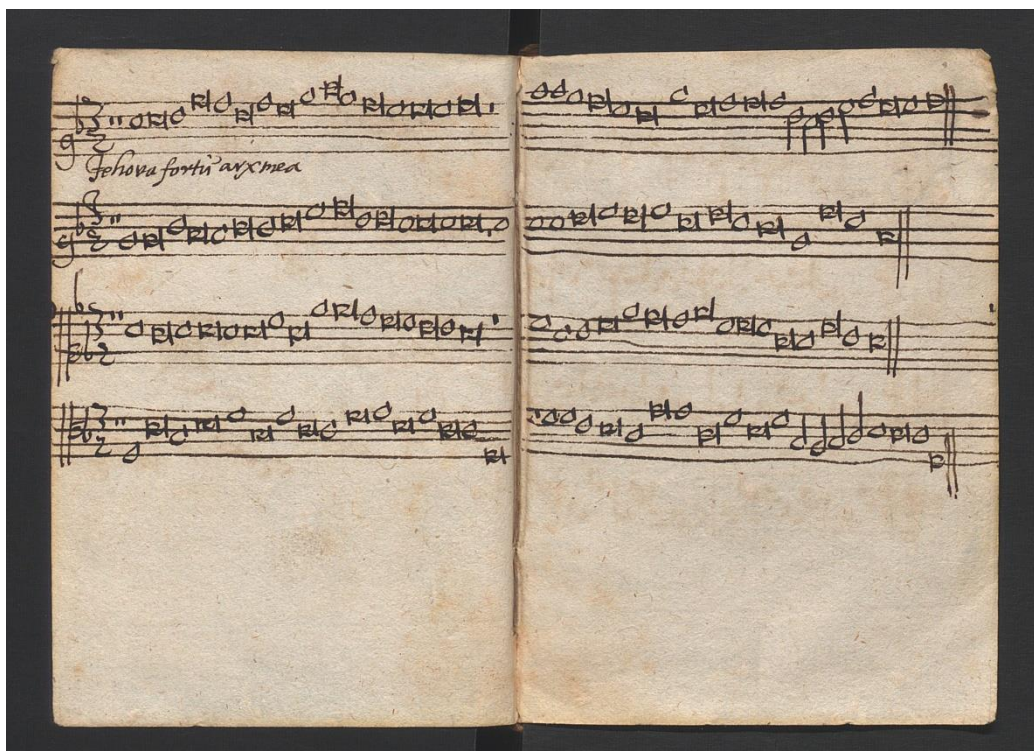 Jehova fortū arx mea